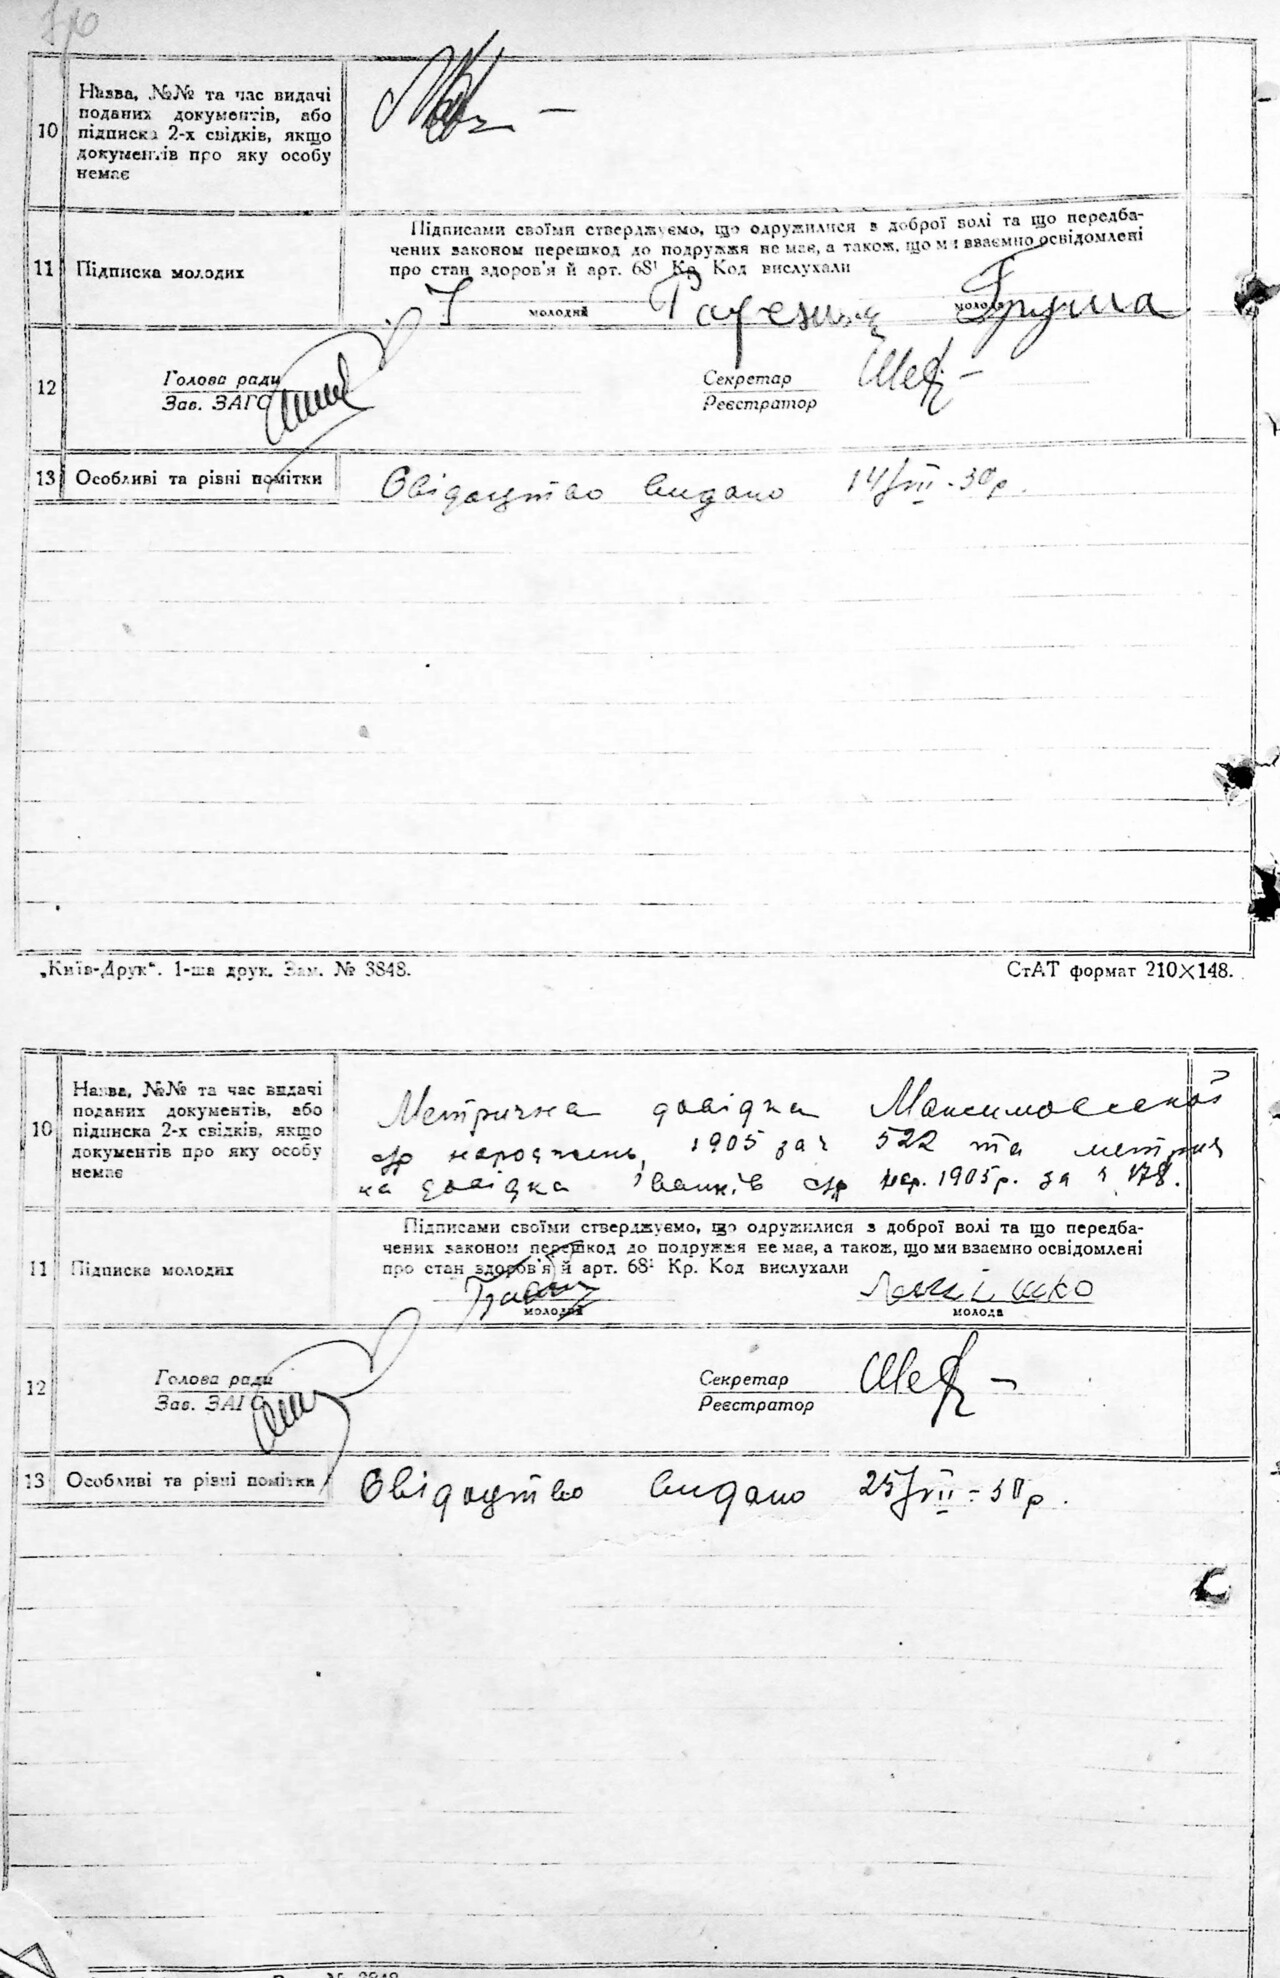 10
Назва, №№ та час видачі
поданих документів, або
підписка 2-х свідків, якщо
документів про яку особу
немає
Підписами своїми стверджуємо, що одружилися з доброї волі та що передба-
чених законом перешкод до подружжя не має, а також, що ми взаємно освідомлені
про стан здоров'я й арт. 68¹ Кр. Код вислухали
11 Підписка молодих
молодий молода Груша
12 Голова ради Секретар
Зав. ЗАГС Реєстратор
13 Особливі та різні помітки Свідоцтво видано 14/VII-30р.
„Київ-Друк". 1-ша друк. Зам. № 3848. СтАТ формат 210×148.
10
Назва, №№ та час видачі
поданих документів, або
підписка 2-х свідків, якщо
документів про яку особу
немає
Метрична довідка Максимовської
ср народжень, 1905 за ч 522 та метрич
на довідка Іванків ср нар. 1905р. за ч 178.
Підписами своїми стверджуємо, що одружилися з доброї волі та що передба-
чених законом перешкод до подружжя не має, а також, що ми взаємно освідомлені
про стан здоров'я й арт. 68¹ Кр. Код вислухали
11 Підписка молодих
молодий молода
12 Голова ради Секретар
Зав. ЗАГС Реєстратор
13 Особливі та різні помітки Свідоцтво видано 25/VII-30р.